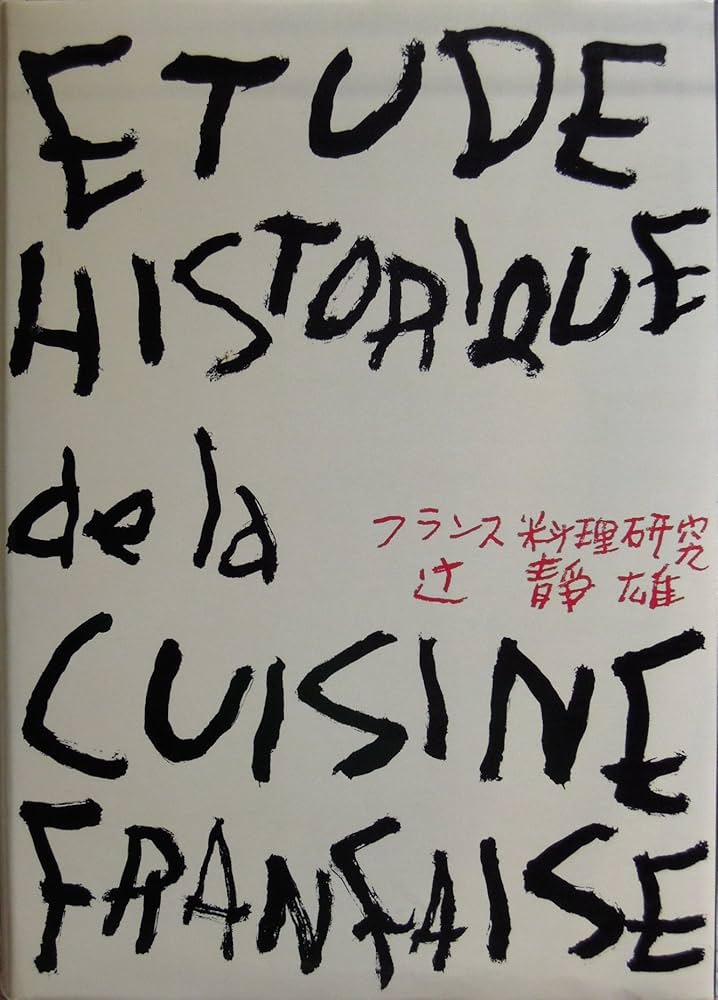 ETUDE
HISTORIQUE
de la
フランス料理研究
辻 静雄
CUISINE
FRANÇAISE